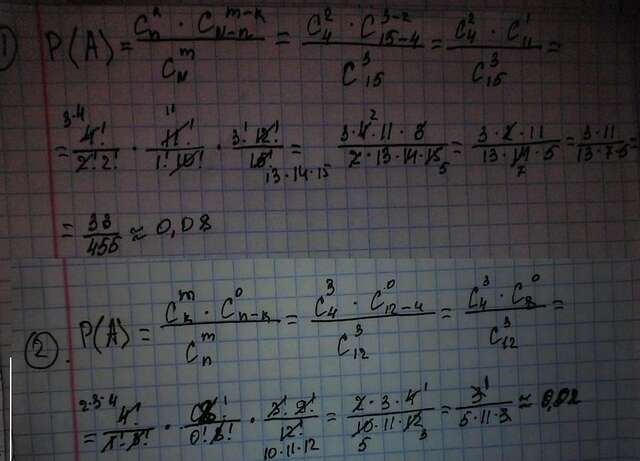 1) P(A) = C_n^k · C_{N-n}^{m-k} / C_N^m = C_4^2 · C_{15-4}^{3-2} / C_15^3 = C_4^2 · C_11^1 / C_15^3 =
= 4! / 2!2! · 11! / 1!10! · 3!12! / 15! = 3·4·11·3 / 2·13·14·15 = 3·2·11 / 13·14·5 = 3·11 / 13·7·5 =
= 33 / 455 ≈ 0,08
2. P(A) = C_k^m · C_{n-k}^0 / C_n^m = C_4^3 · C_{12-4}^0 / C_12^3 = C_4^3 · C_8^0 / C_12^3 =
= 4! / 1!3! · 8! / 0!8! · 3! 9! / 12! = 2·3·4 / 10·11·12 = 1 / 5·11·3 ≈ 0,02